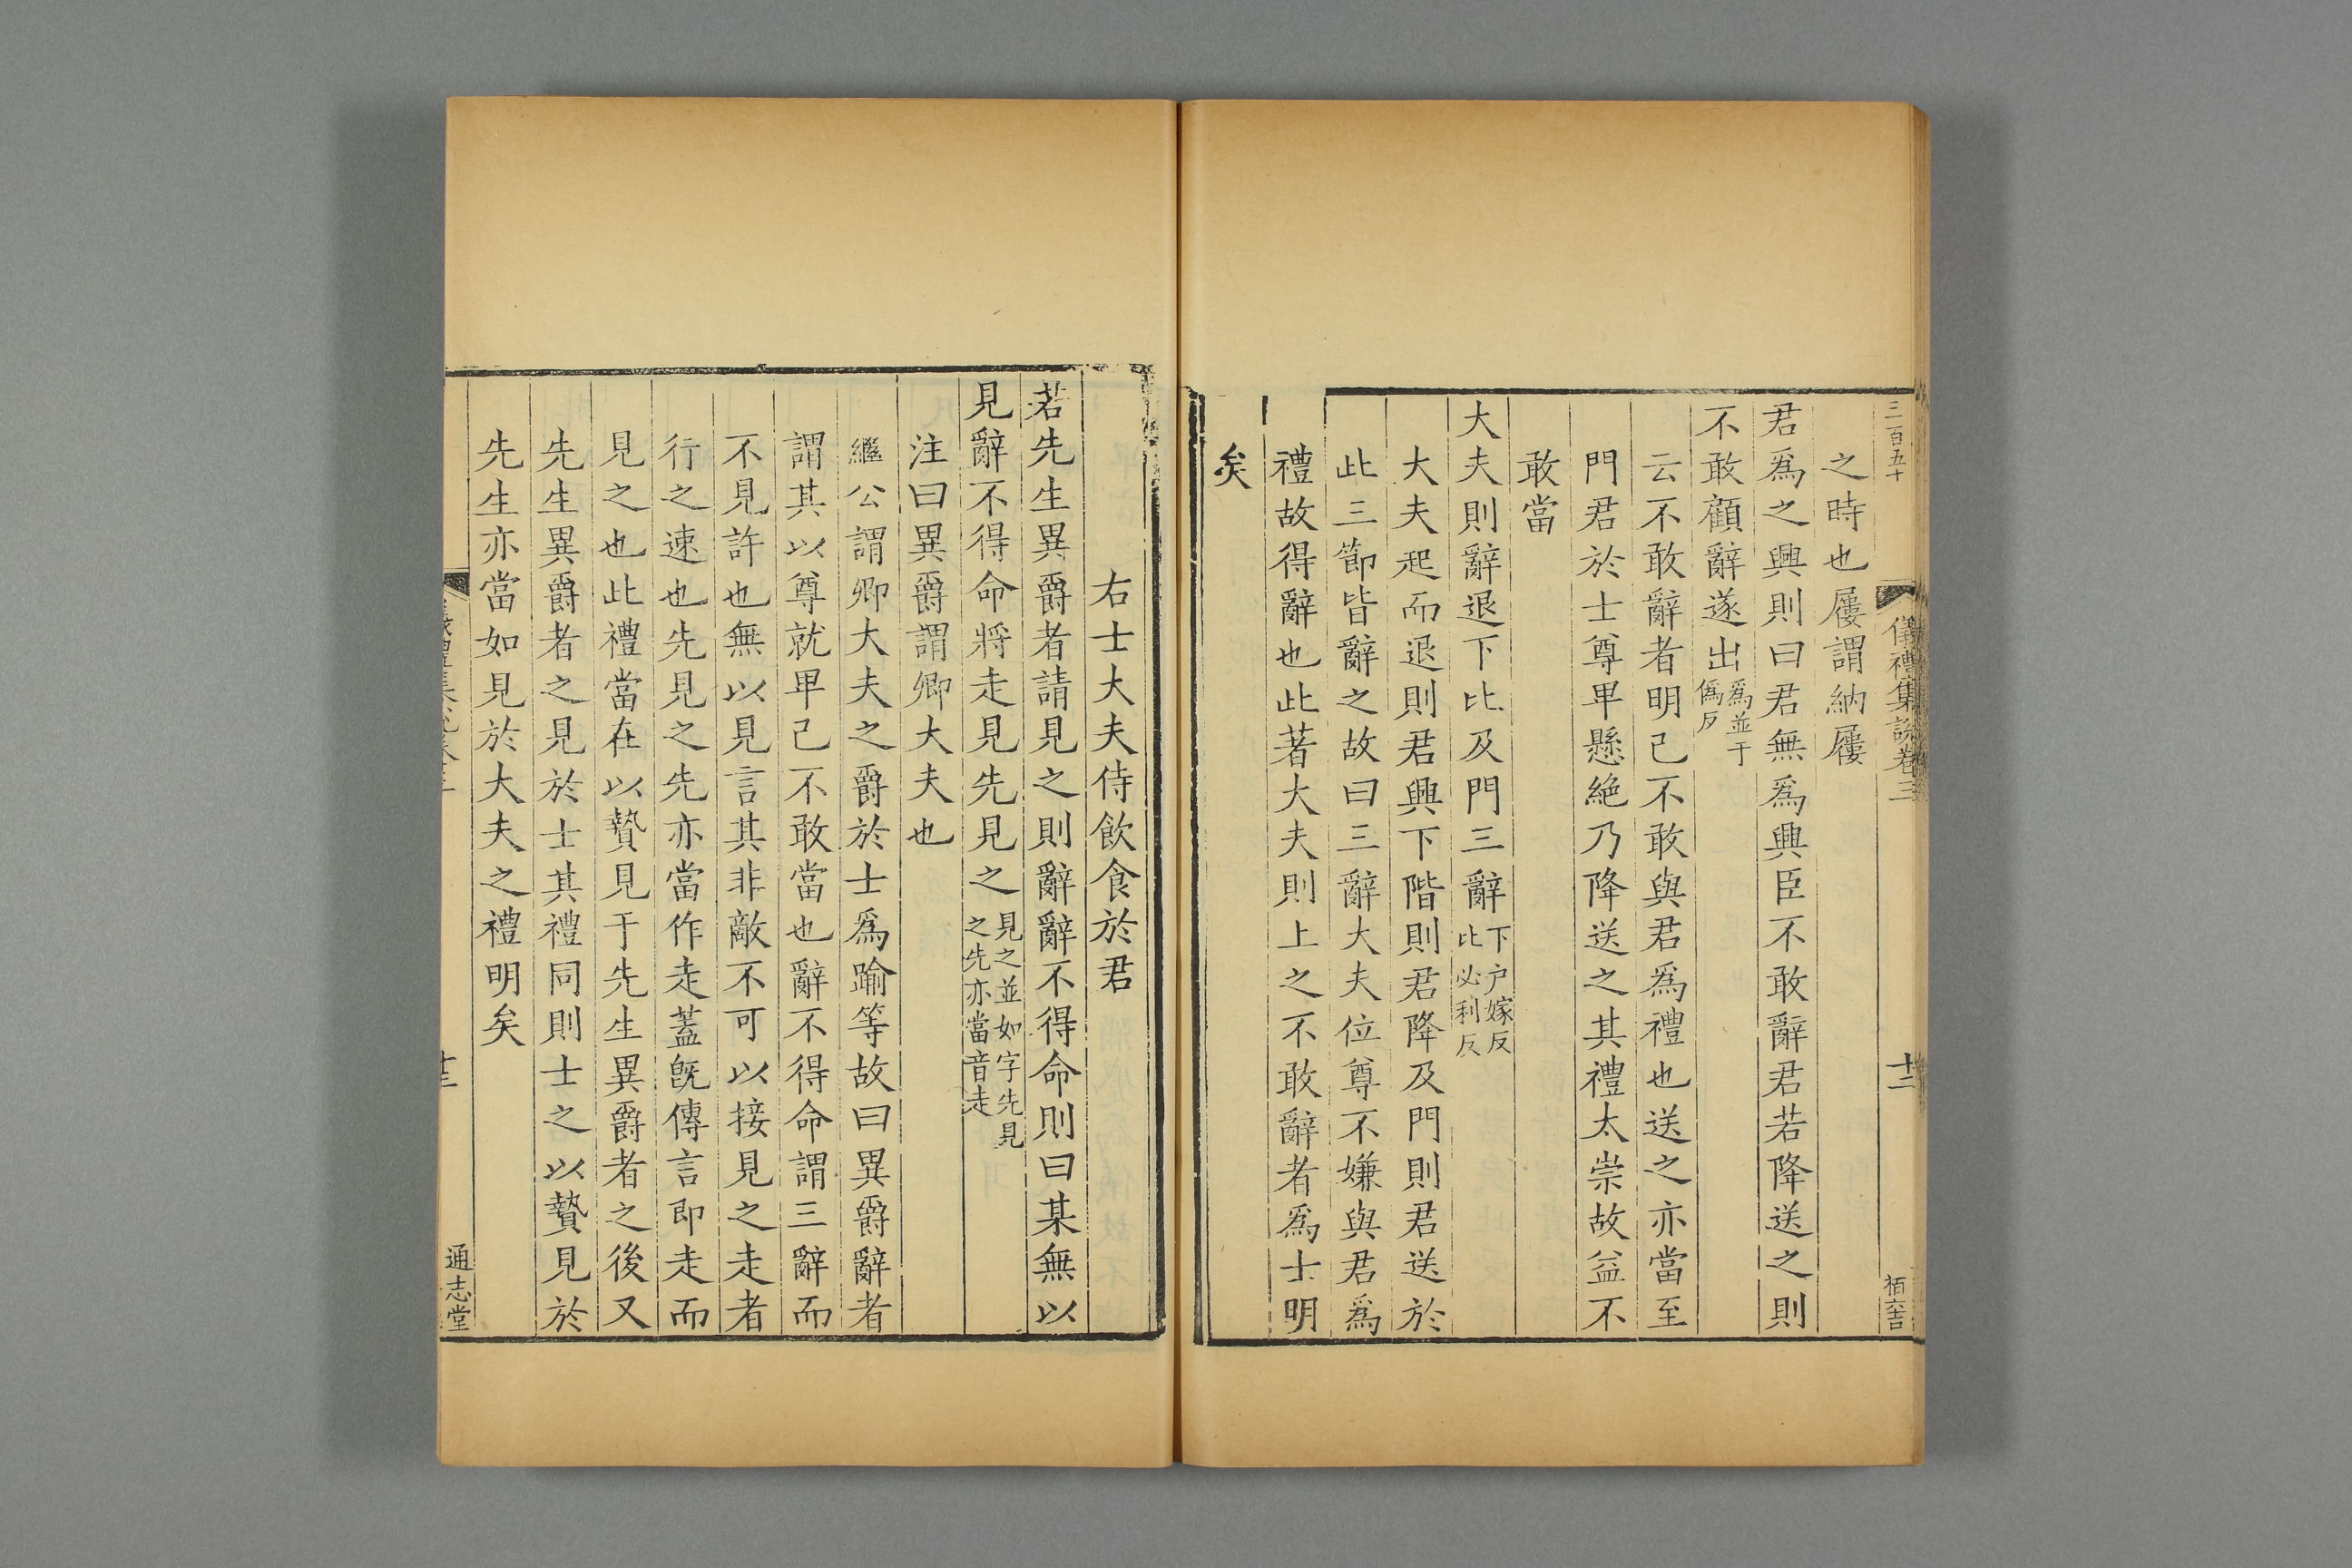 三百五十
儀禮集說卷三
十二
之時也屨謂納屨
君爲之興則曰君無爲興臣不敢辭君若降送之則
不敢顧辭遂出爲並于僞反
云不敢辭者明己不敢與君爲禮也送之亦當至
門君於士尊卑懸絶乃降送之其禮太崇故益不
敢當
大夫則辭退下比及門三辭下户嫁反比必利反
大夫起而退則君興下階則君降及門則君送於
此三節皆辭之故曰三辭大夫位尊不嫌與君爲
禮故得辭也此著大夫則上之不敢辭者爲士明
矣
右士大夫侍飲食於君
若先生異爵者請見之則辭辭不得命則曰某無以
見辭不得命將走見先見之見之並如字先見之先亦當音走
注曰異爵謂卿大夫也
繼公謂卿大夫之爵於士爲踰等故曰異爵辭者
謂其以尊就卑己不敢當也辭不得命謂三辭而
不見許也無以見言其非敵不可以接見之走者
行之速也先見之先亦當作走蓋旣傳言即走而
見之也此禮當在以贄見于先生異爵者之後又
先生異爵者之見於士其禮同則士之以贄見於
先生亦當如見於大夫之禮明矣
通志堂